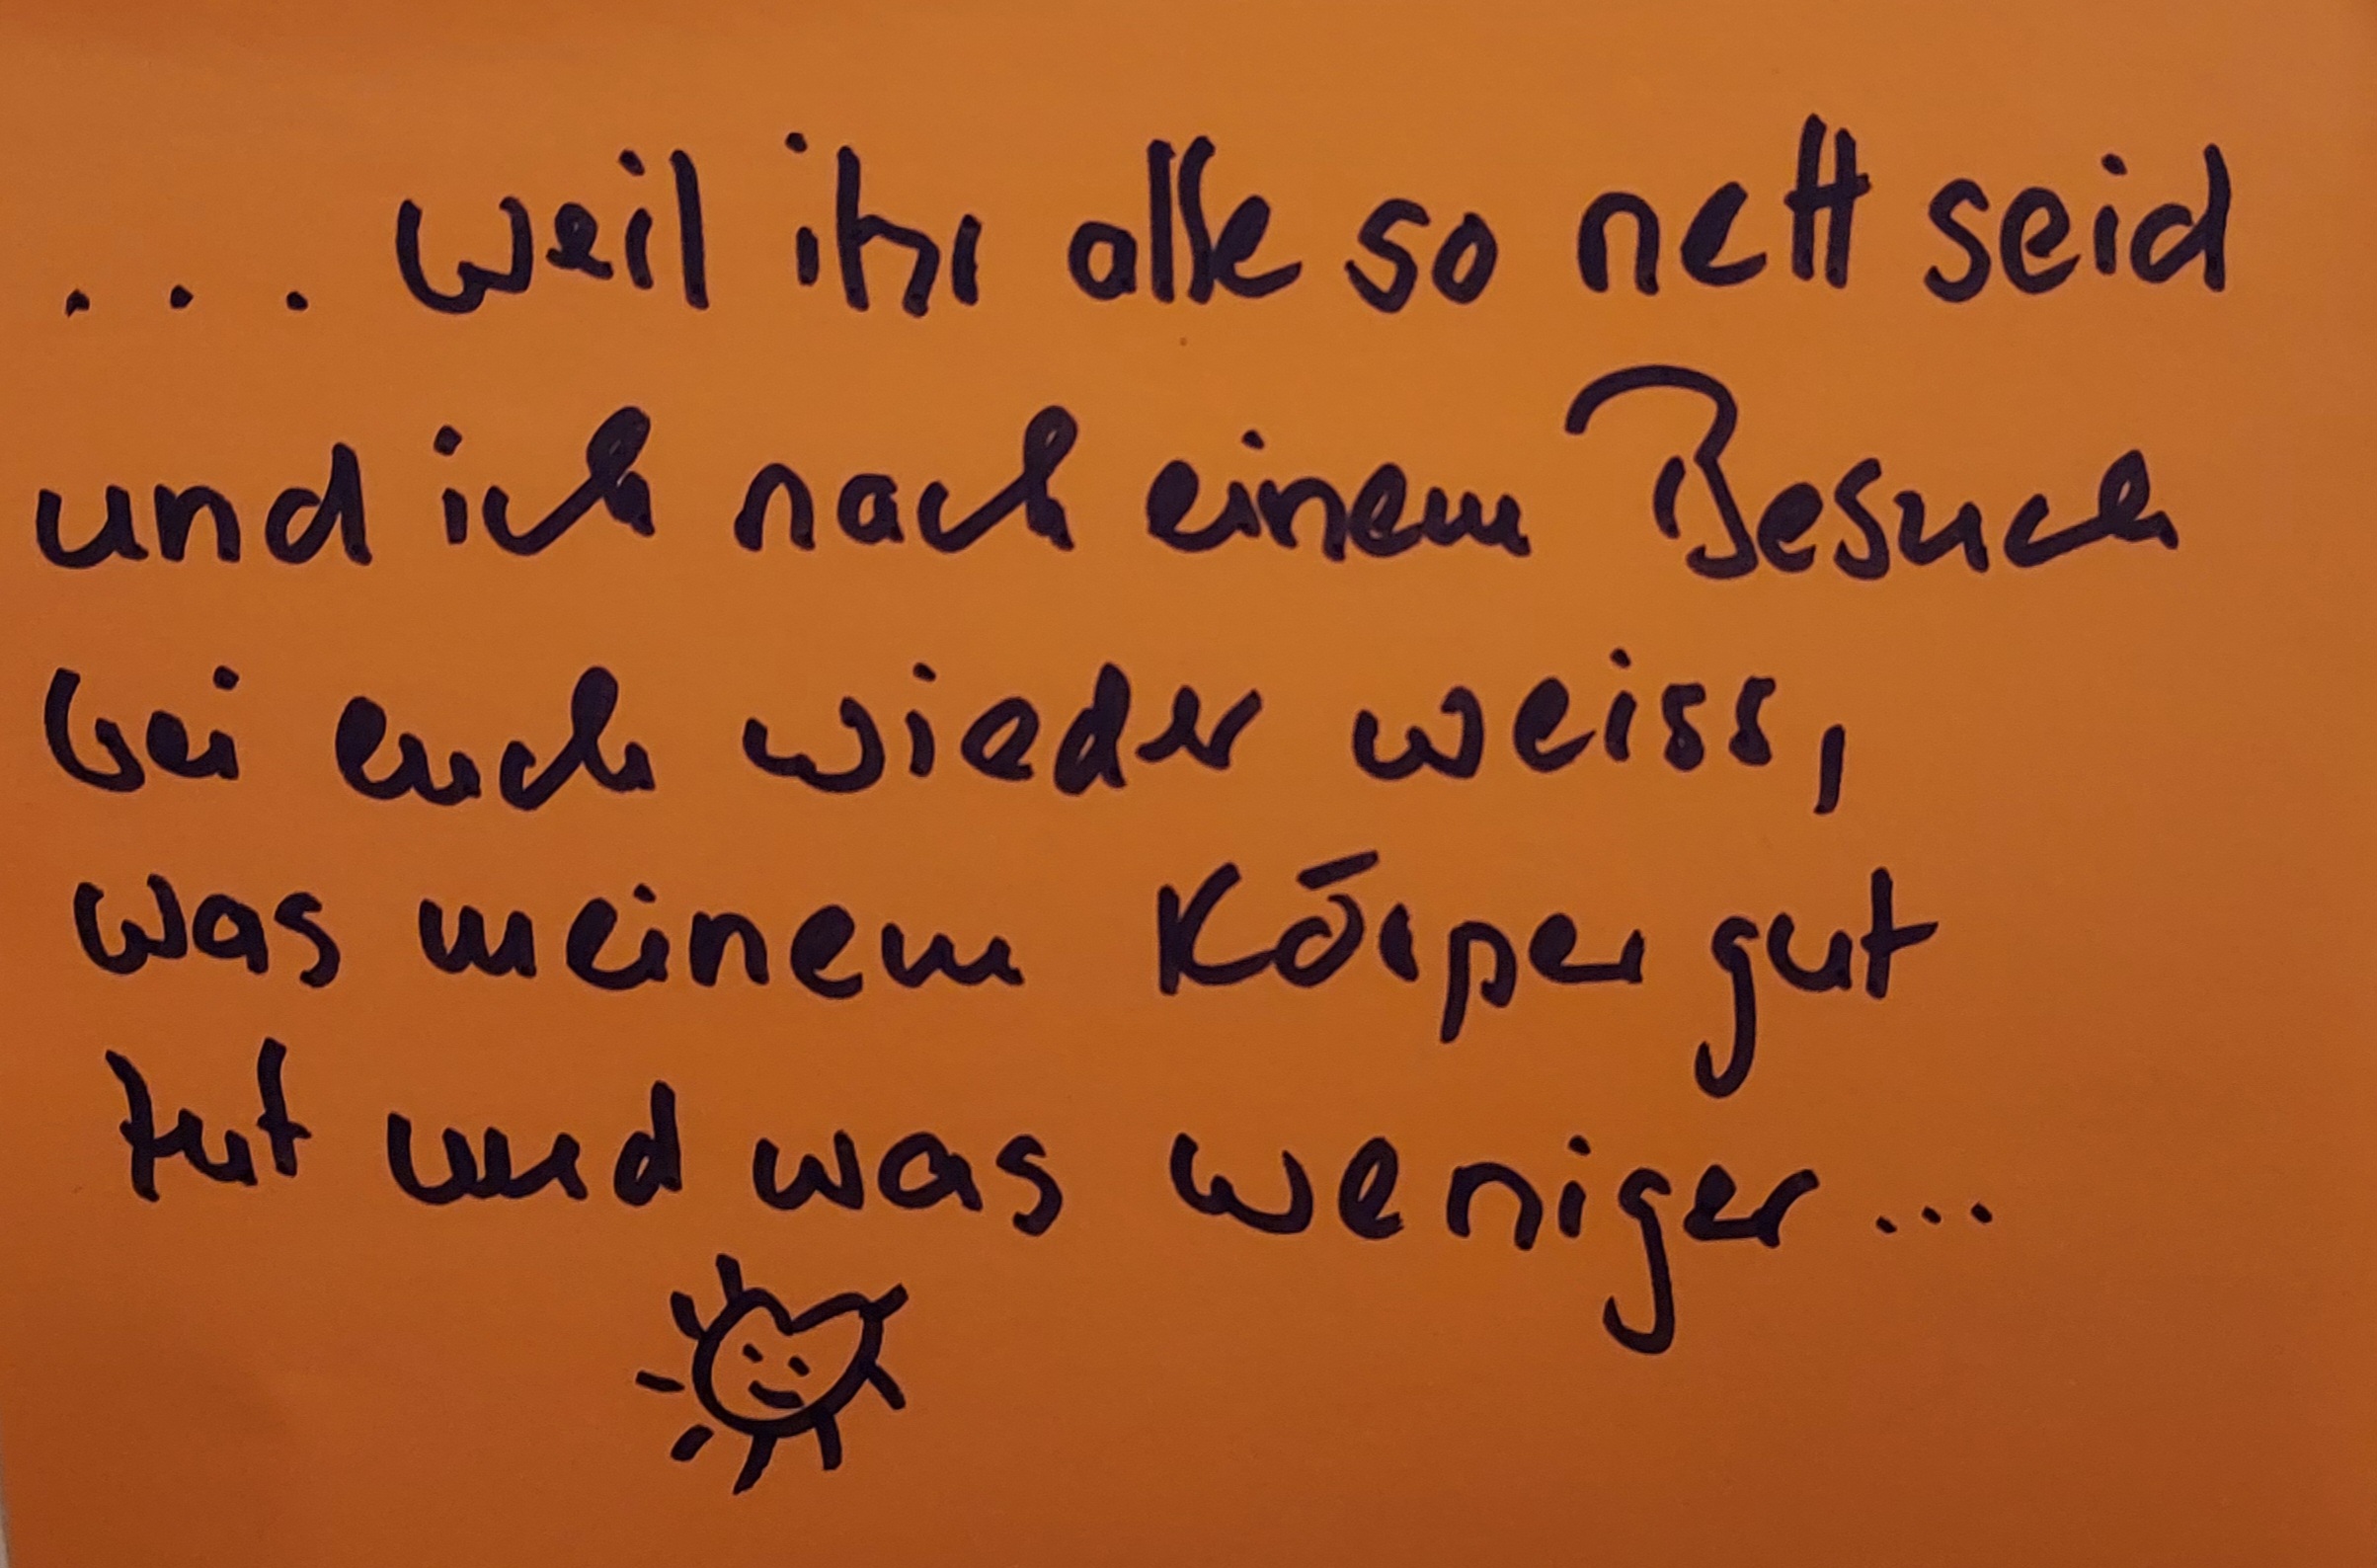 ... weil ihr alle so nett seid
und ich nach einem Besuch
bei euch wieder weiss,
was meinem Körper gut
tut und was weniger...